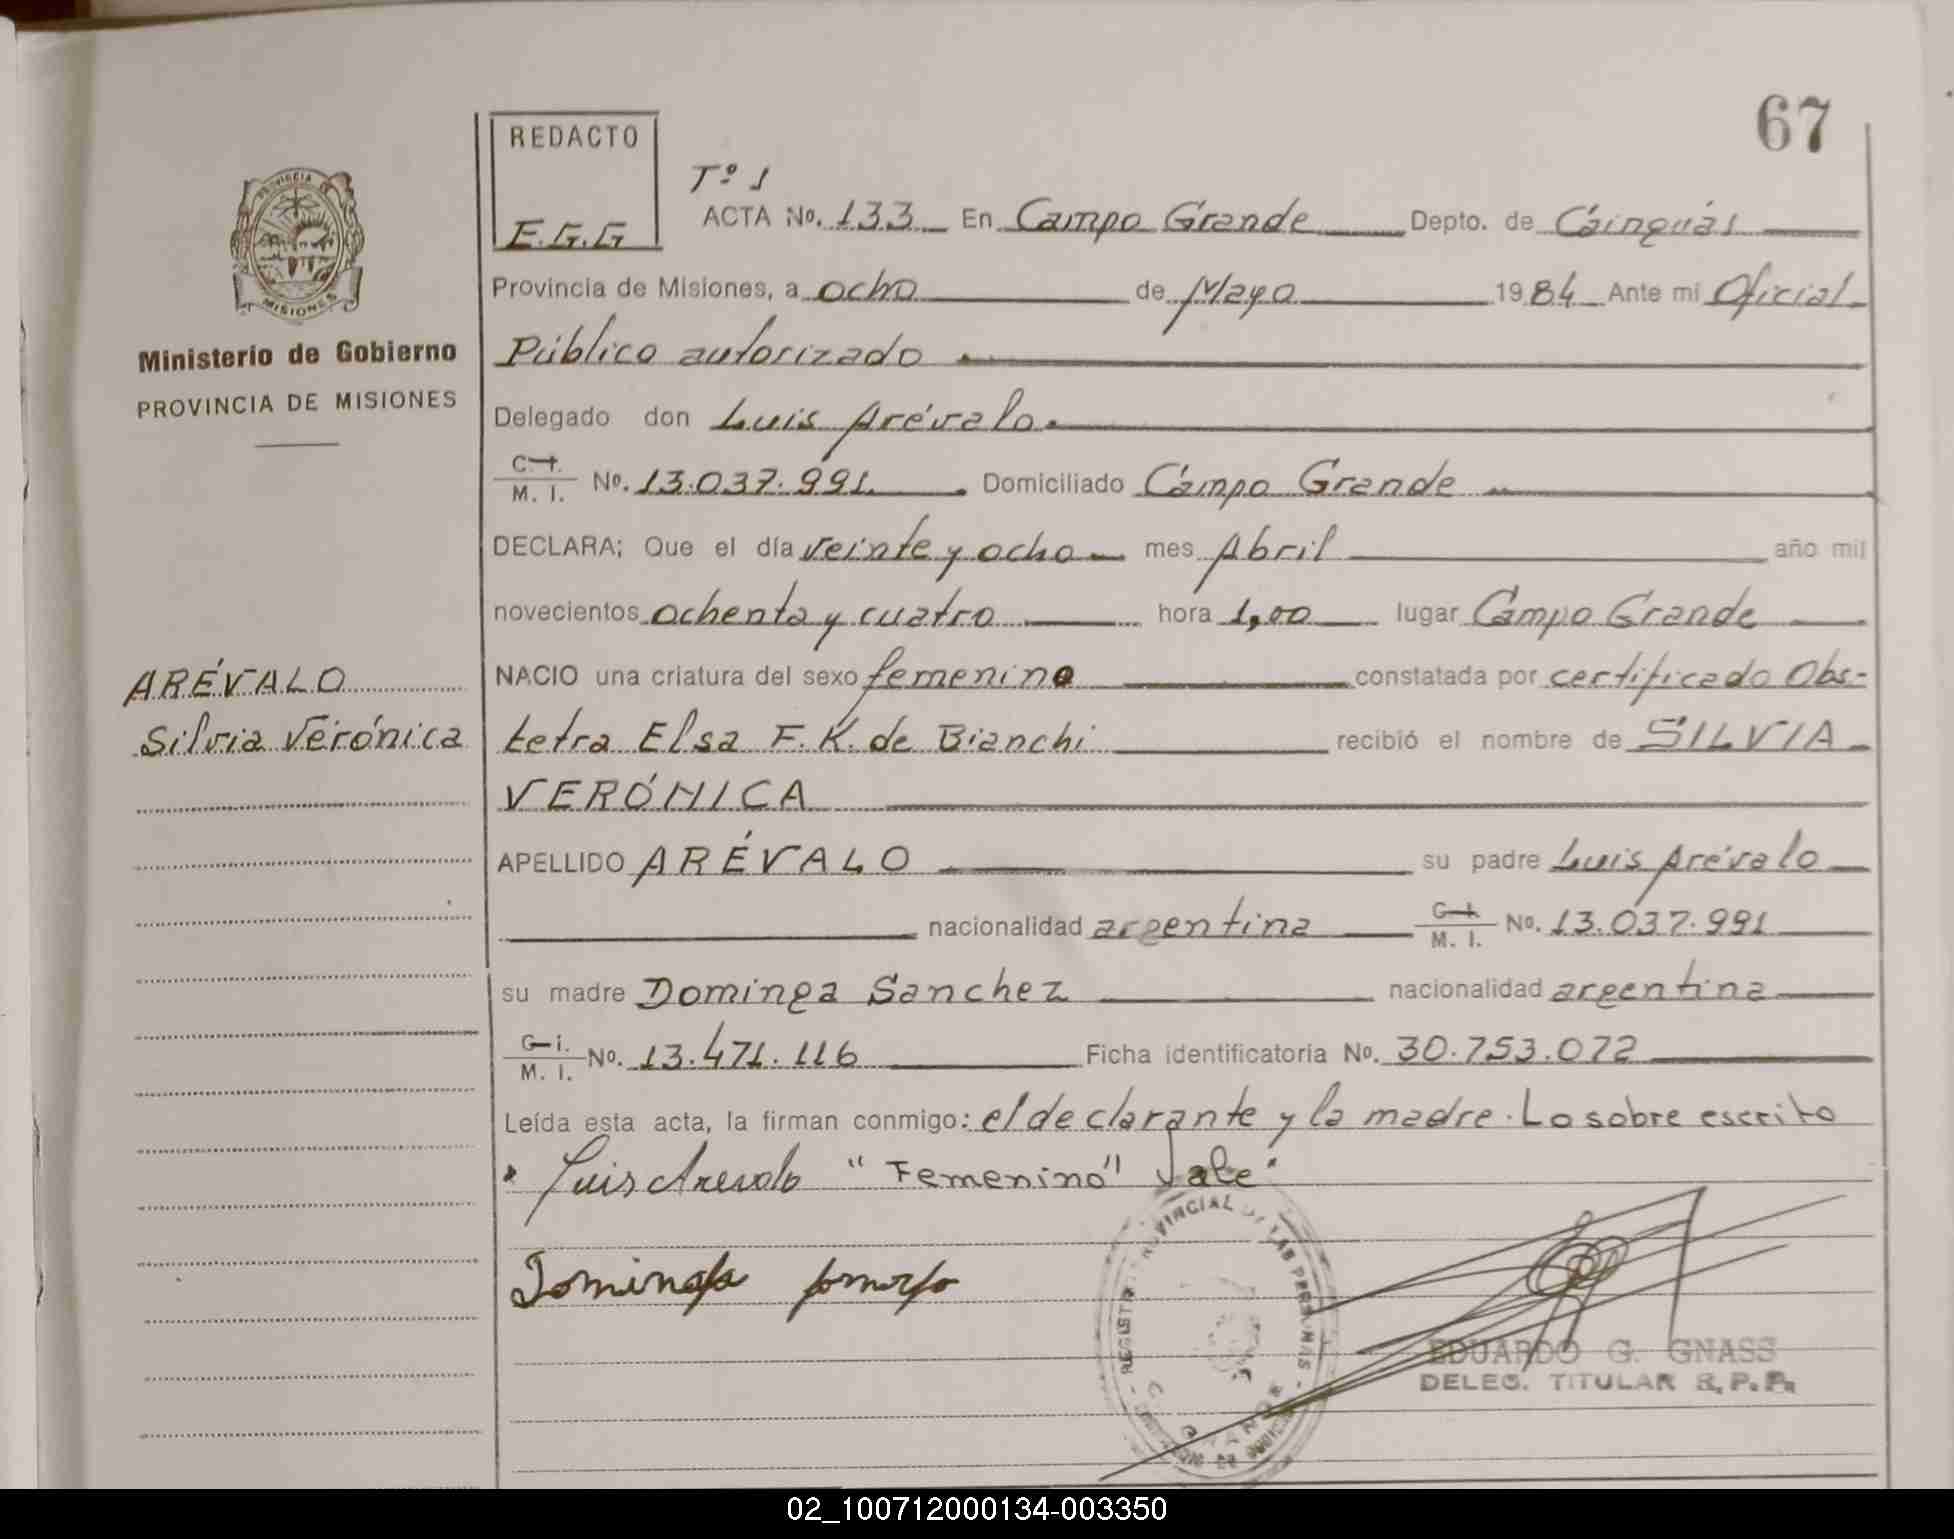 67
REDACTO
E.G.G
Tº 1
ACTA No. 133 En Campo Grande Depto. de Cainguás
Provincia de Misiones, a ocho de Mayo 1984 Ante mi Oficial
Público autorizado
Delegado don Luis Arévalo.
C. I. M. I. No. 13.037.991. Domiciliado Campo Grande
DECLARA; Que el día veinte y ocho mes Abril año mil
novecientos ochenta y cuatro hora 1,00 lugar Campo Grande
NACIO una criatura del sexo femenino constatada por certificado Obs-
tetra Elsa F. K. de Bianchi recibió el nombre de SILVIA
VERÓNICA
APELLIDO ARÉVALO su padre Luis Arévalo
nacionalidad argentina C. I. M. I. No. 13.037.991
su madre Dominga Sanchez nacionalidad argentina
C. I. M. I. No. 13.471.116 Ficha identificatoria No. 30.753.072
Leída esta acta, la firman conmigo: el declarante y la madre. Lo sobre escrito
Luis Arevalo "Femenino" Vale
Dominga
PROVINCIA DE MISIONES
Ministerio de Gobierno
PROVINCIA DE MISIONES
ARÉVALO
Silvia Verónica
REGISTRO PROVINCIAL DE LAS PERSONAS
EDUARDO G. GNASS
DELEG. TITULAR R.P.P.
02_100712000134-003350